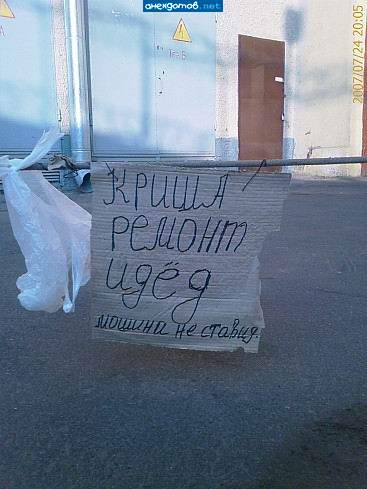 анекдотов.net
2007/07/24 20:05
КРИША
РЕМОНТ
ИДЁД
мошина не ставид.